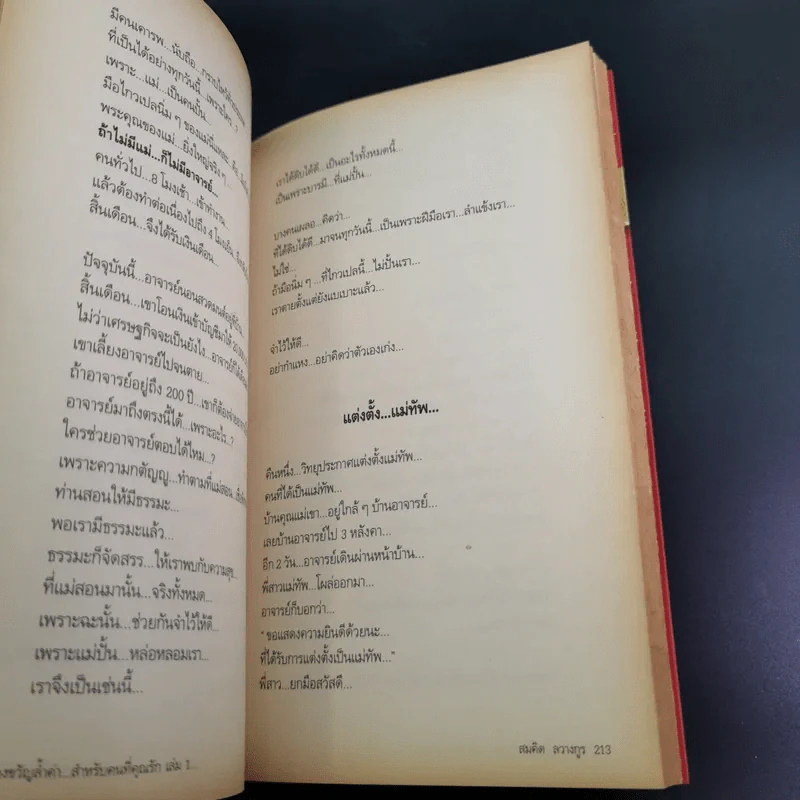 มีคนเคารพ...นับถือ...กราบไหว้
ที่เป็นได้อย่างทุกวันนี้...เพราะใคร..?
เพราะ...แม่...เป็นคนปั้น...
มือไกวเปลนิ่ม ๆ ของแม่นี่แหละ
พระคุณของแม่...ยิ่งใหญ่จริง ๆ...
ถ้าไม่มีแม่...ก็ไม่มีอาจารย์...
คนทั่วไป...8 โมงเช้า...เข้าทำงาน...
แล้วต้องทำต่อเนื่องไปถึง 4 โมงเย็น
สิ้นเดือน...จึงได้รับเงินเดือน...
ปัจจุบันนี้...อาจารย์นอนสวดมนต์อยู่ที่บ้าน
สิ้นเดือน...เขาโอนเงินเข้าบัญชีมาให้
ไม่ว่าเศรษฐกิจจะเป็นยังไง...อาจารย์ก็ได้
เขาเลี้ยงอาจารย์ไปจนตาย...
ถ้าอาจารย์อยู่ถึง 200 ปี...เขาก็ต้อง
อาจารย์มาถึงตรงนี้ได้...เพราะอะไร..?
ใครช่วยอาจารย์ตอบได้ไหม...?
เพราะความกตัญญู...ทำตามที่แม่สอน
ท่านสอนให้มีธรรมะ...
พอเรามีธรรมะแล้ว...
ธรรมะก็จัดสรร...ให้เราพบกับความสุข...
ที่แม่สอนมานั้น...จริงทั้งหมด...
เพราะฉะนั้น...ช่วยกันจำไว้ให้ดี...
เพราะแม่ปั้น...หล่อหลอมเรา...
เราจึงเป็นเช่นนี้...
งขวัญล้ำค่า...สำหรับคนที่คุณรัก เล่ม 1...
เราได้ดิบได้ดี...เป็นอะไรทั้งหมดนี้...
เป็นเพราะบารมี...ที่แม่ปั้น...
บางคนเผลอ...คิดว่า...
ที่ได้ดิบได้ดี...มาจนทุกวันนี้...เป็นเพราะฝีมือเรา...ลำแข้งเรา...
ไม่ใช่...
ถ้ามือนิ่ม ๆ ...ที่ไกวเปลนี้...ไม่ปั้นเรา...
เราตายตั้งแต่ยังแบเบาะแล้ว...
จำไว้ให้ดี...
อย่ากำแหง...อย่าคิดว่าตัวเองเก่ง...
แต่งตั้ง...แม่ทัพ...
คืนหนึ่ง...วิทยุประกาศแต่งตั้งแม่ทัพ...
คนที่ได้เป็นแม่ทัพ...
บ้านคุณแม่เขา...อยู่ใกล้ ๆ บ้านอาจารย์...
เลยบ้านอาจารย์ไป 3 หลังคา...
อีก 2 วัน...อาจารย์เดินผ่านหน้าบ้าน...
พี่สาวแม่ทัพ...โผล่ออกมา...
อาจารย์ก็บอกว่า...
" ขอแสดงความยินดีด้วยนะ...
ที่ได้รับการแต่งตั้งเป็นแม่ทัพ..."
พี่สาว...ยกมือสวัสดี...
สมคิด ลวางกูร 213